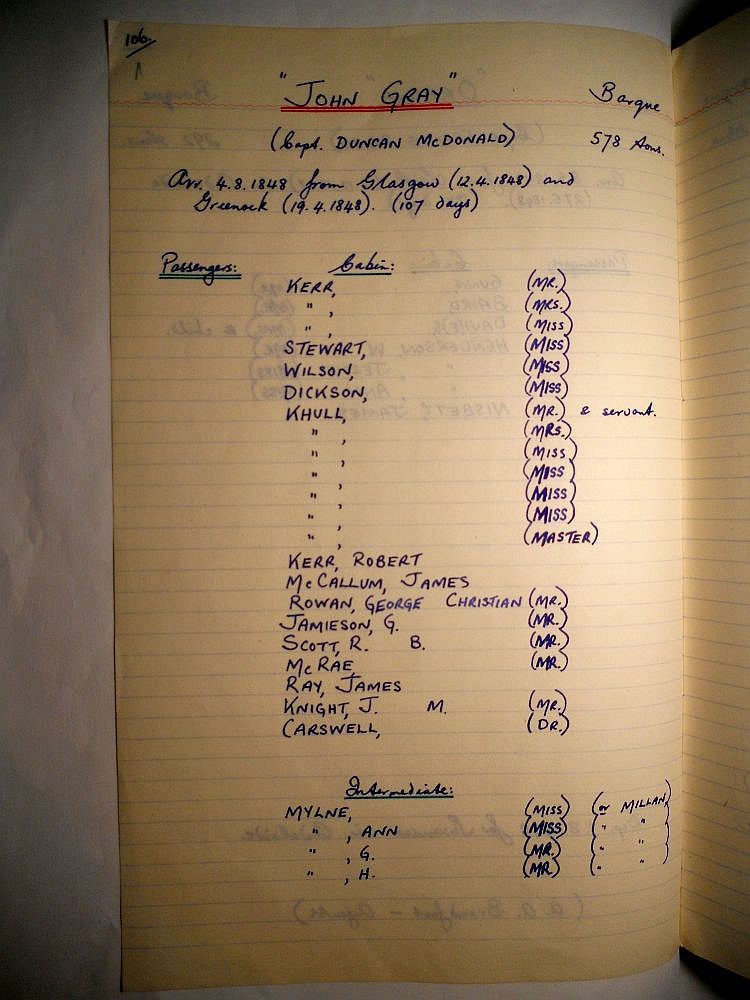 106.
"JOHN GRAY" Barque
(Capt. DUNCAN McDONALD) 578 tons.
Arr. 4.8.1848 from Glasgow (12.4.1848) and
Greenock (19.4.1848). (107 days)
Passengers: Cabin:
KERR, (MR.)
" , (MRS.)
" , (MISS)
STEWART, (MISS)
WILSON, (MISS)
DICKSON, (MISS)
KHULL, (MR.) & servant.
" , (MRS.)
" , (MISS)
" , (MISS)
" , (MISS)
" , (MISS)
" , (MASTER)
KERR, ROBERT
McCALLUM, JAMES
ROWAN, GEORGE CHRISTIAN (MR.)
JAMIESON, G. (MR.)
SCOTT, R. B. (MR.)
McRAE, (MR.)
RAY, JAMES
KNIGHT, J. M. (MR.)
CARSWELL, (DR.)
Intermediate:
MYLNE, (MISS) (or MILLAN)
" , ANN (MISS) ( " " )
" , G. (MR.) ( " " )
" , H. (MR) ( " " )